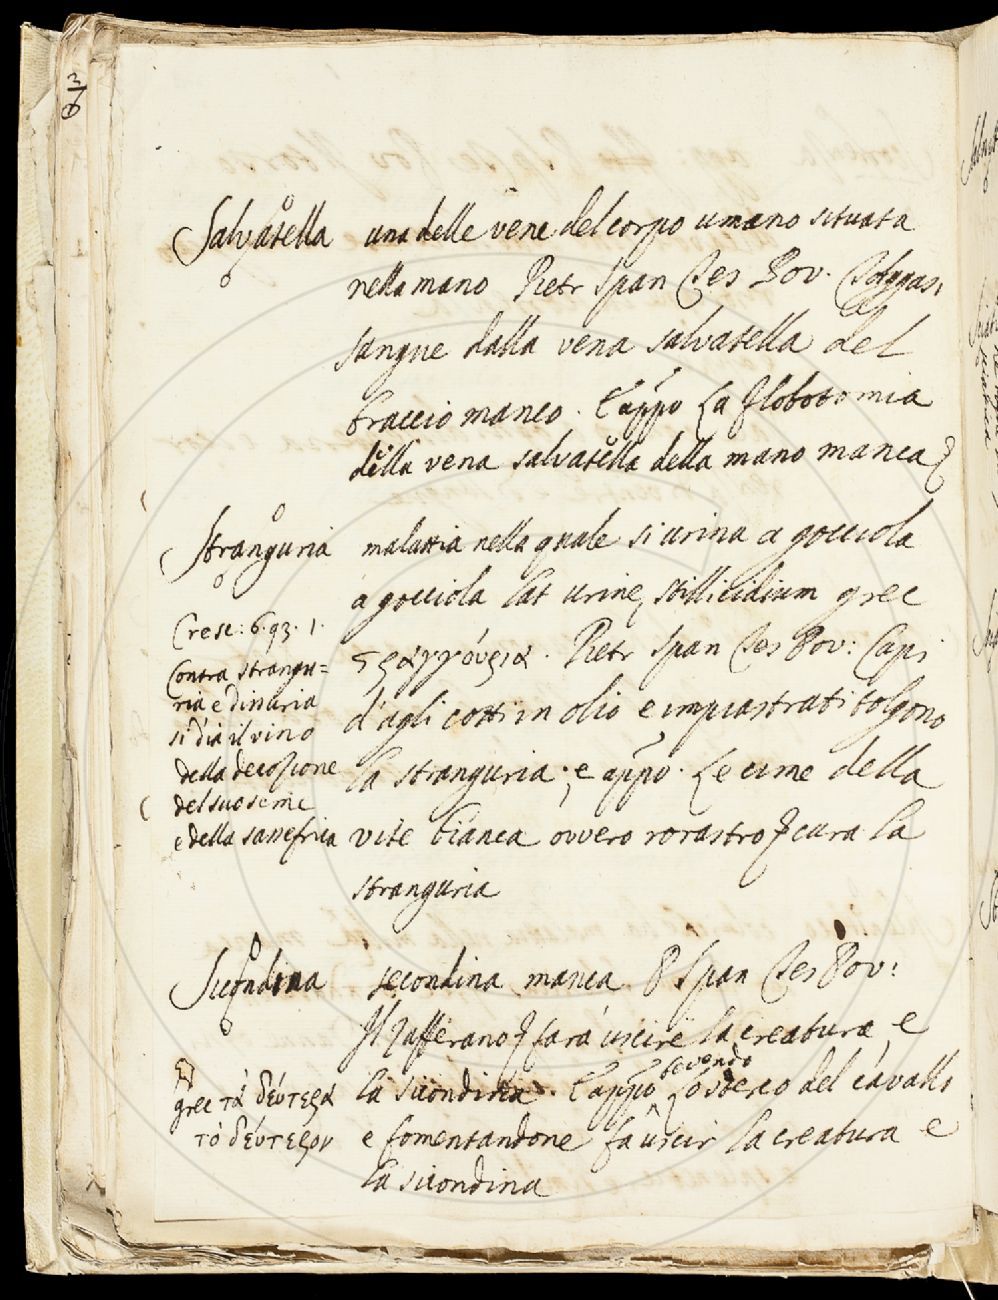 3/6
Salvatella una delle vene del corpo umano situata
nella mano Pietr Span Tes Pov. Tolgasi
sangue dalla vena salvatella del
braccio manco. E appo La flobotomia
della vena salvatella della mano manca
Stranguria malattia nella quale si urina a gocciola
a gocciola lat urine stillicidium grec
ςραγγόυρια. Pietr Span Tes Pov: Capi
d'agli cotti in olio e impiastrati tolgono
la stranguria. e appo. Le cime della
vite bianca ovvero rorastro cura la
stranguria
Cresc: 6. 93. 1.
Contra strangu=
ria e dissuria
si dia il vino
della decozione
del suo seme
e della sassefrica
Sicondina secondina manca P Span Tes Pov:
Il Zafferano fara uscire la creatura e
la sicondina. E appo Lo sterco del cavallo
bevendo
e fomentandone fa uscir la creatura e
la sicondina
grec τὰ δέυτερα
τὸ δέυτερον